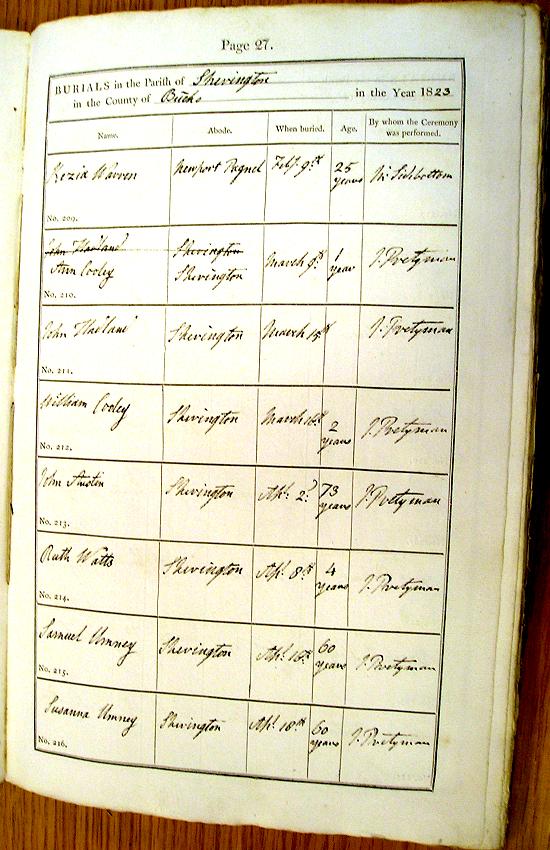 Page 27.
BURIALS in the Parish of Sherington
in the County of Bucks in the Year 1823
Name. Abode. When buried. Age. By whom the Ceremony was performed.
Kezia Warren Newport Pagnel Feby. 9th 25 years
No. 209.
Sherington
Ann Cooley Sherington March 9th 1 year J. Pretyman
No. 210.
John Sherington March 15th J. Pretyman
No. 211.
William Cooley Sherington March 16th 2 years J. Pretyman
No. 212.
John Austin Sherington Apl. 2d 73 years J. Pretyman
No. 213.
Ruth Watts Sherington Apl. 8th 4 years J. Pretyman
No. 214.
Samuel Umney Sherington Apl. 16th 60 years J. Pretyman
No. 215.
Susanna Umney Sherington Apl. 18th 60 years J. Pretyman
No. 216.